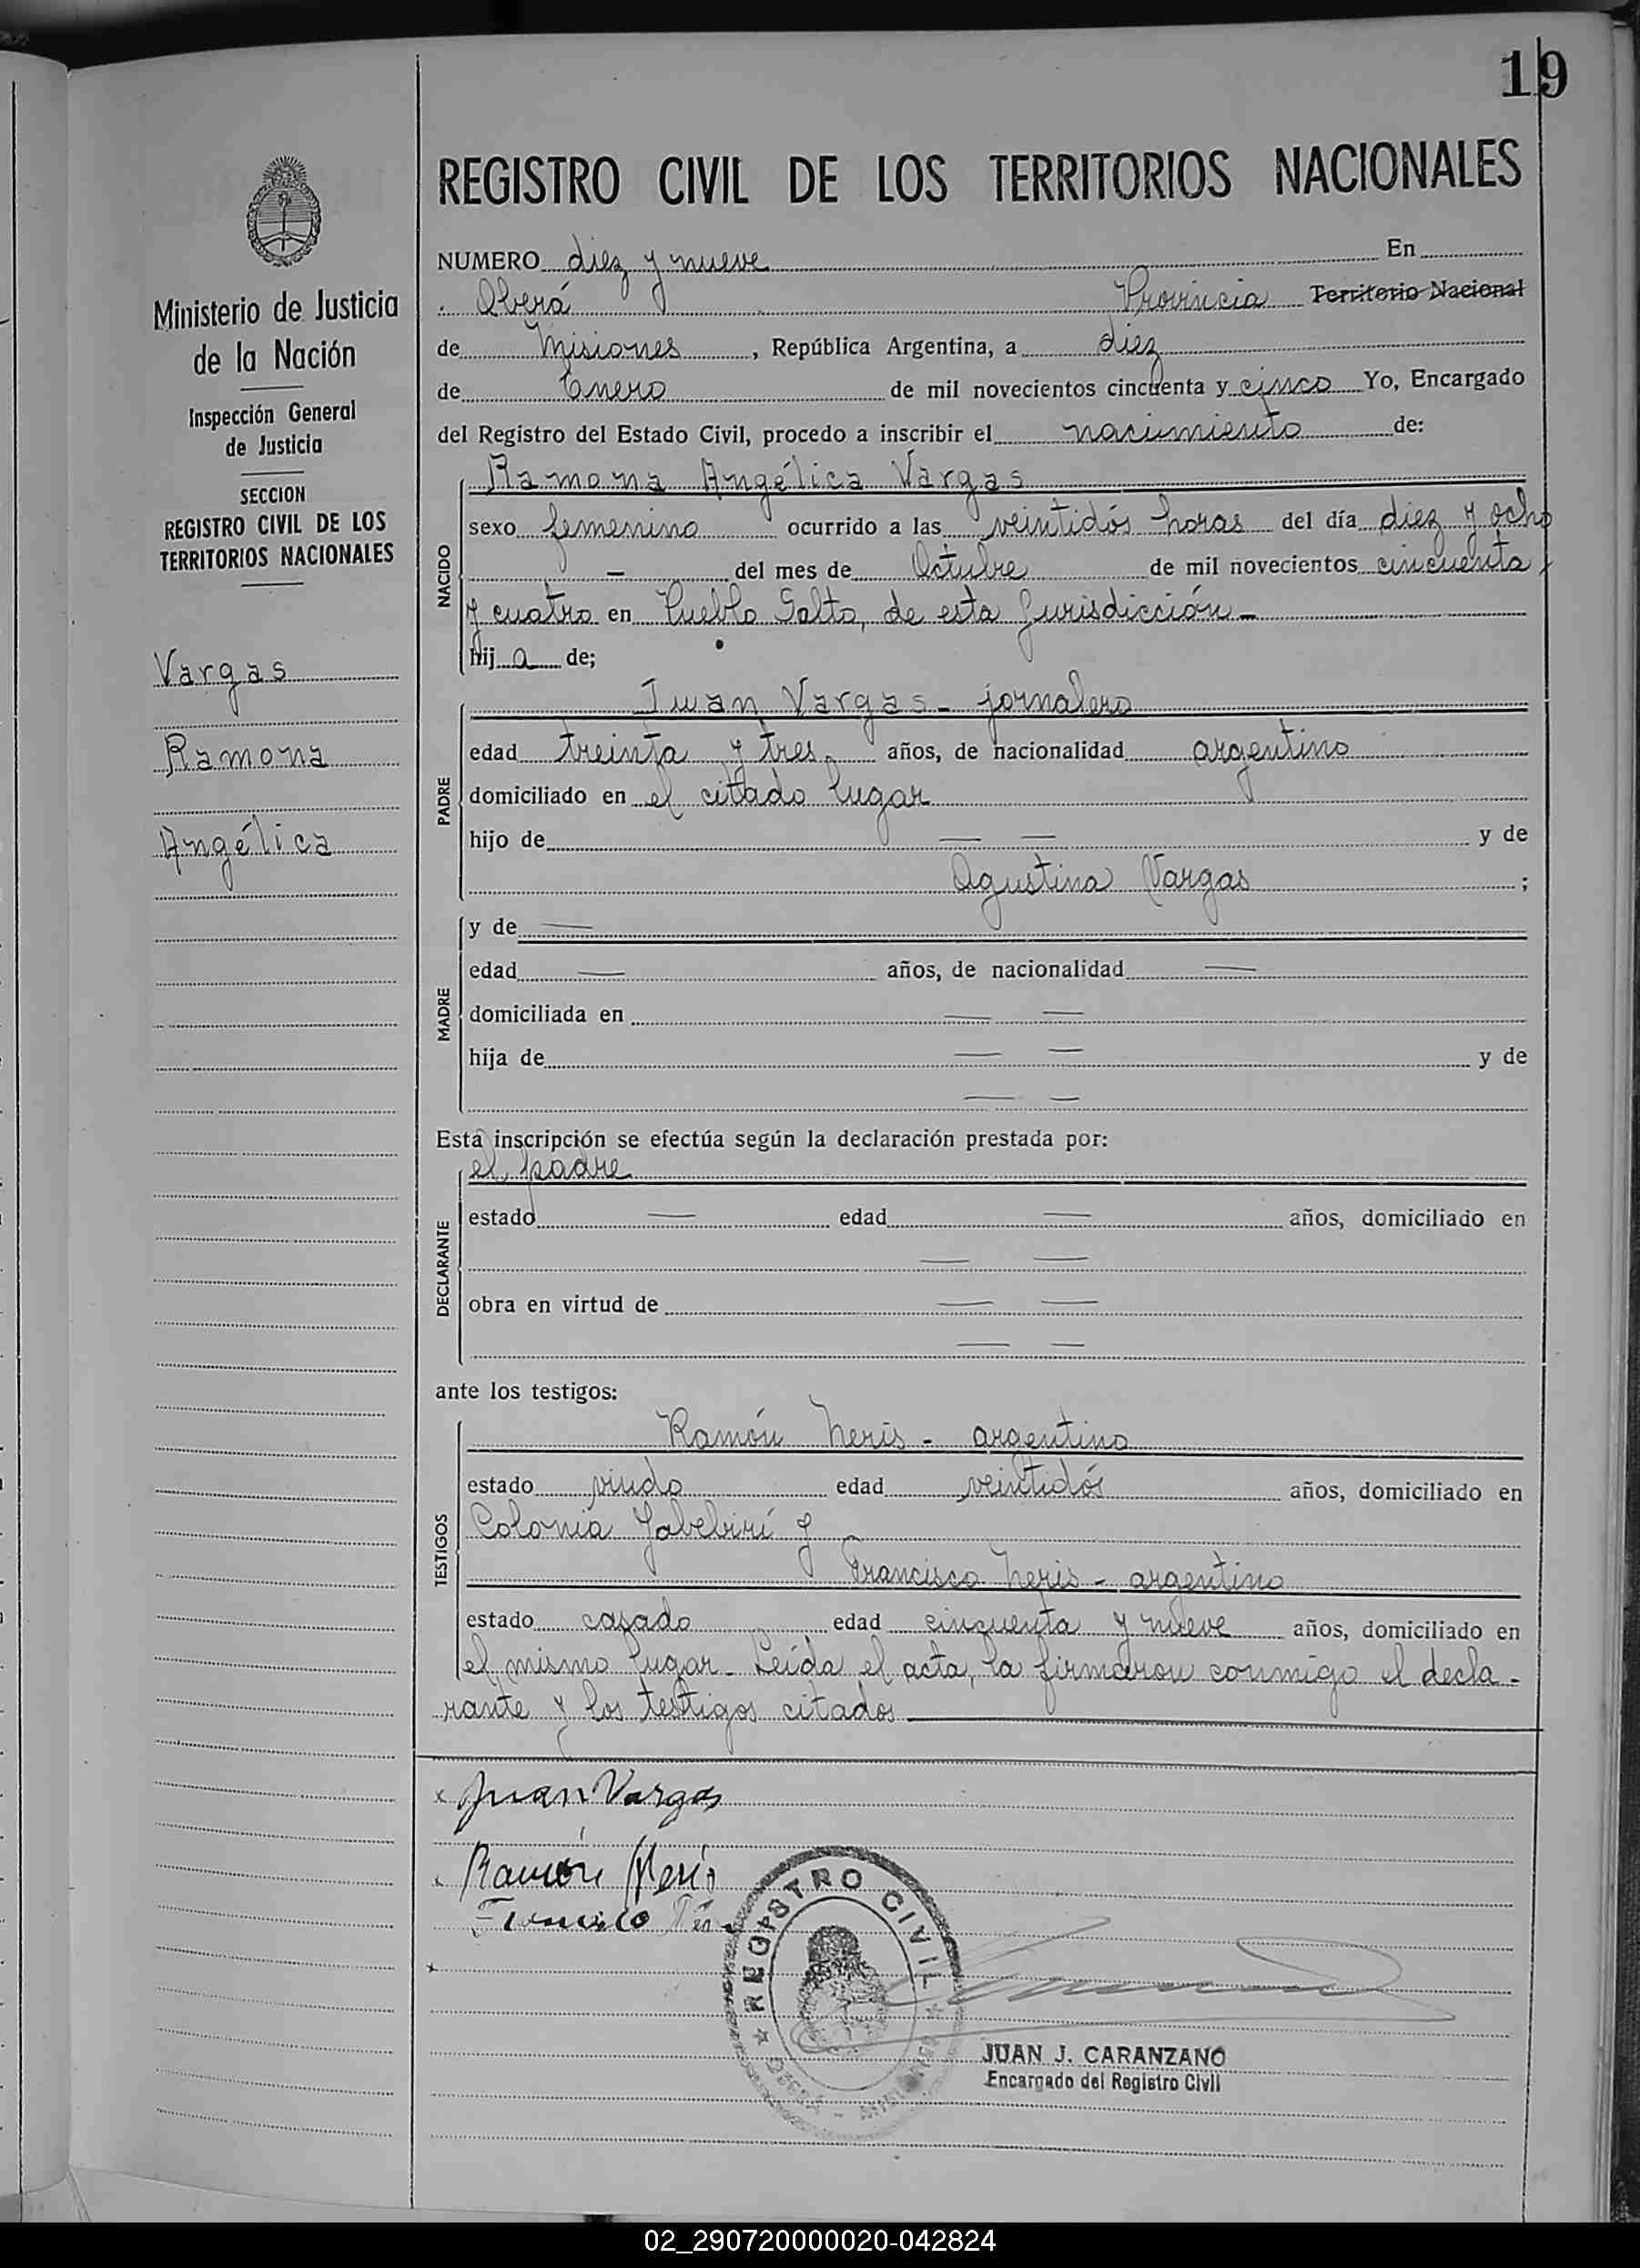 19
REGISTRO CIVIL DE LOS TERRITORIOS NACIONALES
Ministerio de Justicia
de la Nación
Inspección General
de Justicia
SECCION
REGISTRO CIVIL DE LOS
TERRITORIOS NACIONALES
Vargas
Ramona
Angélica
NUMERO diez y nueve En
Oberá Provincia Territorio Nacional
de Misiones, República Argentina, a diez
de Enero de mil novecientos cincuenta y cinco Yo, Encargado
del Registro del Estado Civil, procedo a inscribir el nacimiento de:
NACIDO
Ramona Angélica Vargas
sexo femenino ocurrido a las veintidós horas del día diez y ocho
- del mes de Octubre de mil novecientos cincuenta
y cuatro en Pueblo Salto, de esta Jurisdicción -
hij a de;
PADRE
Juan Vargas - jornalero
edad treinta y tres años, de nacionalidad argentino
domiciliado en el citado lugar
hijo de — — y de
Agustina Vargas ;
MADRE
y de —
edad — años, de nacionalidad —
domiciliada en — —
hija de — — y de
— —
Esta inscripción se efectúa según la declaración prestada por:
DECLARANTE
el padre
estado — edad — años, domiciliado en
— —
obra en virtud de — —
— —
ante los testigos:
TESTIGOS
Ramón Neris - argentino
estado viudo edad veintidós años, domiciliado en
Colonia Yabebirí y
Francisco Neris - argentino
estado casado edad cincuenta y nueve años, domiciliado en
el mismo lugar - Leída el acta, la firmaron conmigo el decla-
rante y los testigos citados
x Juan Vargas
Ramón Neris
Francisco
REGISTRO CIVIL
JUAN J. CARANZANO
Encargado del Registro Civil
02_290720000020-042824